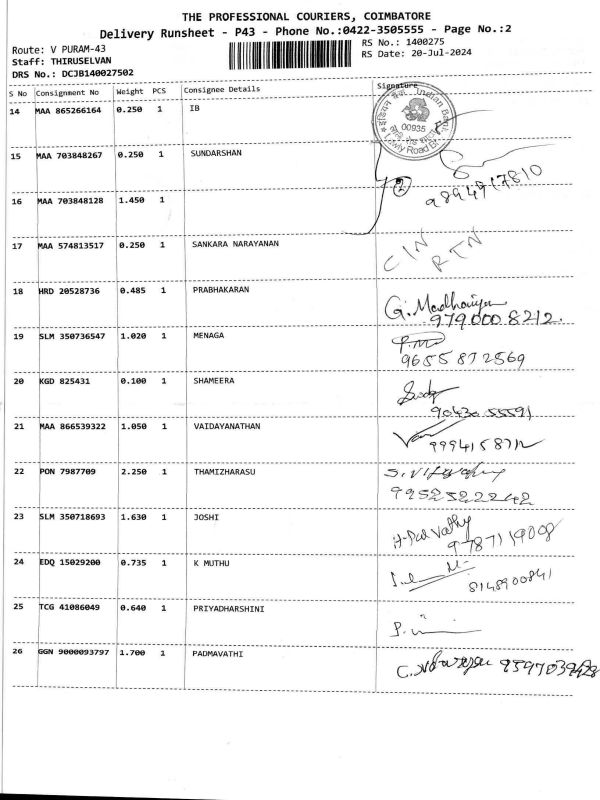 THE PROFESSIONAL COURIERS, COIMBATORE
Delivery Runsheet - P43 - Phone No.:0422-3505555 - Page No.:2
Route: V PURAM-43
RS No.: 1400275
Staff: THIRUSELVAN
RS Date: 20-Jul-2024
DRS No.: DCJB140027502
S No Consignment No Weight PCS Consignee Details Signature
14 MAA 865266164 0.250 1 IB
Indian Bank
इंडियन बैंक
00935
15 MAA 703848267 0.250 1 SUNDARSHAN
16 MAA 703848128 1.450 1 2 9894917810
17 MAA 574813517 0.250 1 SANKARA NARAYANAN CIN RTN
18 HRD 20528736 0.485 1 PRABHAKARAN G.
9790008212.
19 SLM 350736547 1.020 1 MENAGA
9655872569
20 KGD 825431 0.100 1 SHAMEERA
9043055591
21 MAA 866539322 1.050 1 VAIDAYANATHAN
22 PON 7987709 2.250 1 THAMIZHARASU
9952522242
23 SLM 350718693 1.630 1 JOSHI
9787119008
24 EDQ 15029200 0.735 1 K MUTHU
8148900841
25 TCG 41086049 0.640 1 PRIYADHARSHINI
26 GGN 9000093797 1.700 1 PADMAVATHI